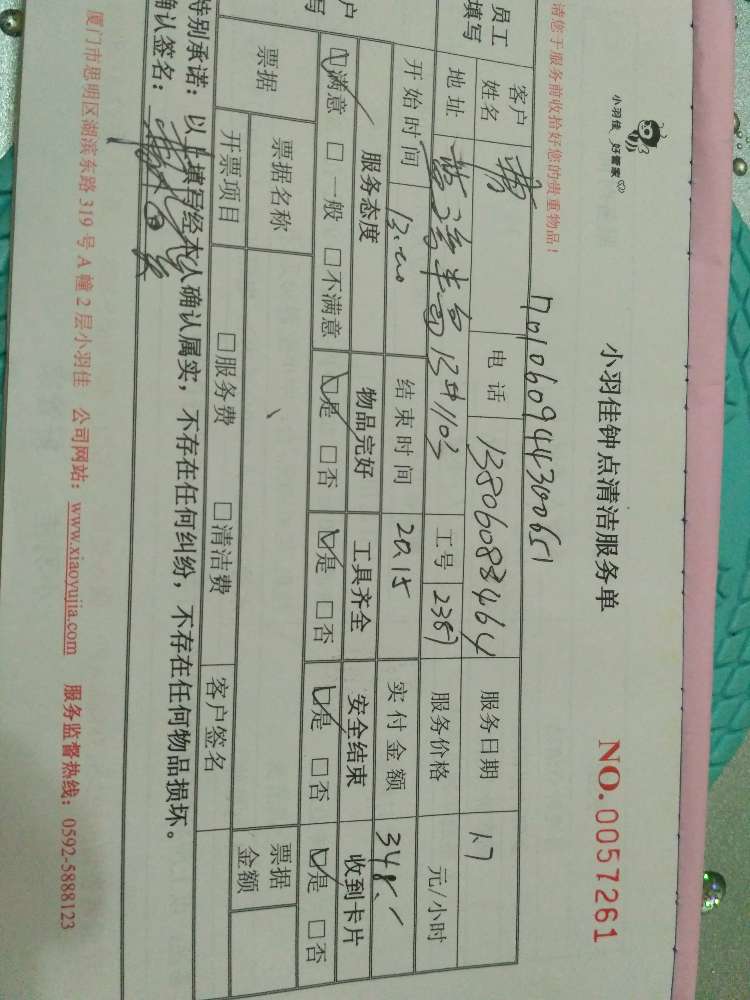 小羽佳 好管家
小羽佳钟点清洁服务单
NO.0057261
请您于服务前收拾好您的贵重物品!
701060944300651
员工填写
客户姓名
电话 13806083464
服务日期 1.7
地址
工号 2387
服务价格 元/小时
开始时间 13:00
结束时间 20.15
实付金额 348.
服务态度 物品完好 工具齐全 安全结束 收到卡片
☑满意 □一般 □不满意 ☑是 □否 ☑是 □否 ☑是 □否 ☑是 □否
票据 票据名称 票据金额
开票项目 □服务费 □清洁费 客户签名
特别承诺:以上填写经本人确认属实,不存在任何纠纷,不存在任何物品损坏。
确认签名:
厦门市思明区湖滨东路 319 号 A 幢 2 层小羽佳 公司网站:www.xiaoyujia.com 服务监督热线:0592-5888123